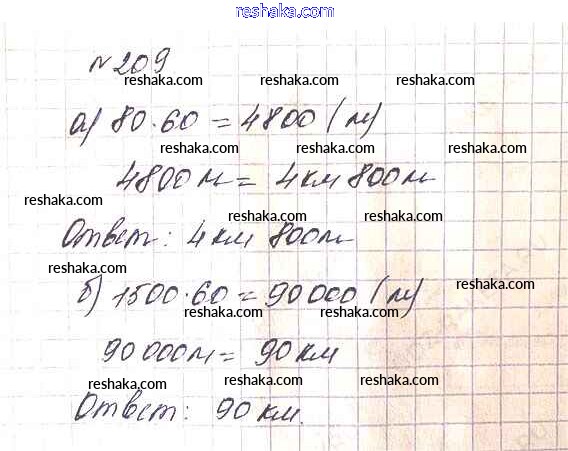 reshaka.com
№ 209
reshaka.com reshaka.com reshaka.com
а) 80·60 = 4800 (м)
reshaka.com reshaka.com reshaka.com
4800 м = 4 км 800 м
reshaka.com reshaka.com reshaka.com
Ответ: 4 км 800 м
reshaka.com reshaka.com reshaka.com
б) 1500·60 = 90 000 (м)
reshaka.com reshaka.com reshaka.com
90 000 м = 90 км
reshaka.com reshaka.com reshaka.com
Ответ: 90 км.
reshaka.com reshaka.com reshaka.com